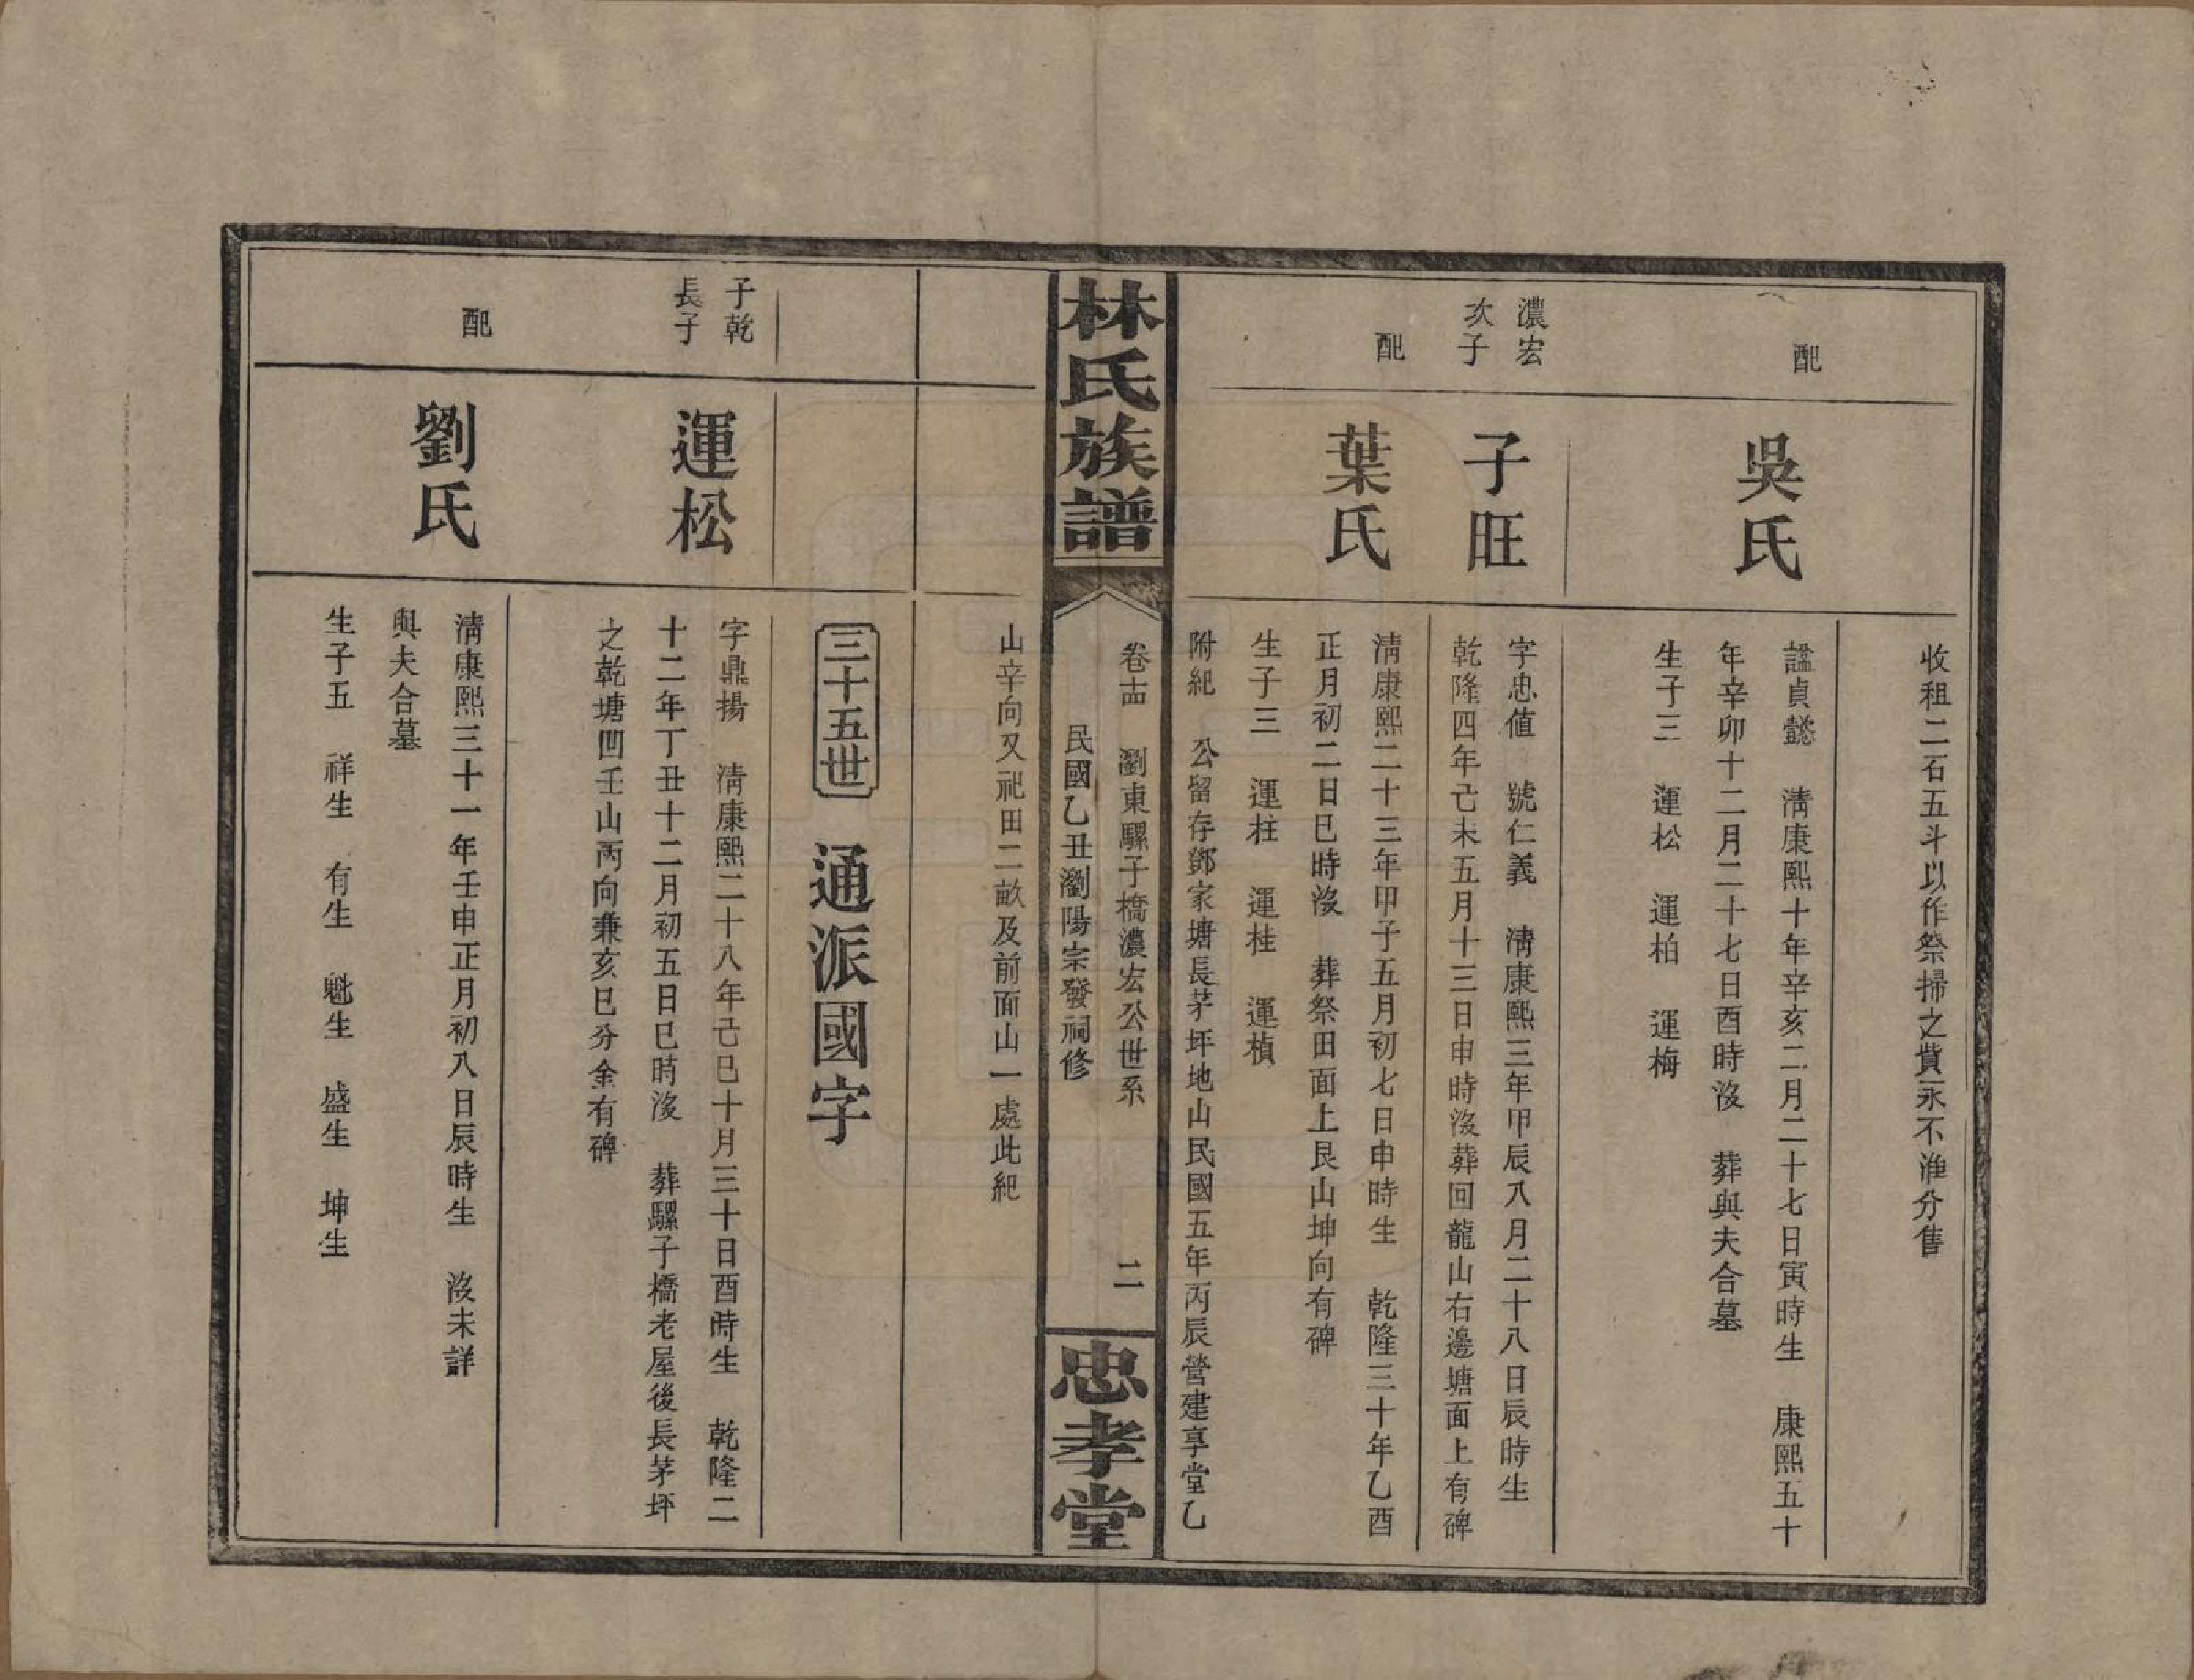 收租二石五斗以作祭掃之貲永不準分售
配
吳氏
諡貞懿　清康熙十年辛亥二月二十七日寅時生　康熙五十
年辛卯十二月二十七日酉時沒　葬與夫合墓
生子三　運松　運柏　運梅
濃宏
次子
子旺
字忠值　號仁義　清康熙三年甲辰八月二十八日辰時生
乾隆四年己未五月十三日申時沒葬回龍山右邊塘面上有碑
配
葉氏
清康熙二十三年甲子五月初七日申時生　乾隆三十年乙酉
正月初二日巳時沒　葬祭田面上艮山坤向有碑
生子三　運柱　運桂　運楨
附紀　公留存鄧家塘長茅坪地山民國五年丙辰營建享堂乙
林氏族譜
卷十四　瀏東騾子橋濃宏公世系
二
民國乙丑瀏陽宗發祠修
忠孝堂
山辛向又祀田二畝及前面山一處此紀
三十五世　通派國字
子乾
長子
運松
字鼎揚　清康熙二十八年己巳十月三十日酉時生　乾隆二
十二年丁丑十二月初五日巳時沒　葬騾子橋老屋後長茅坪
之乾塘凹壬山丙向兼亥巳分金有碑
配
劉氏
清康熙三十一年壬申正月初八日辰時生　沒未詳
與夫合墓
生子五　祥生　有生　魁生　盛生　坤生